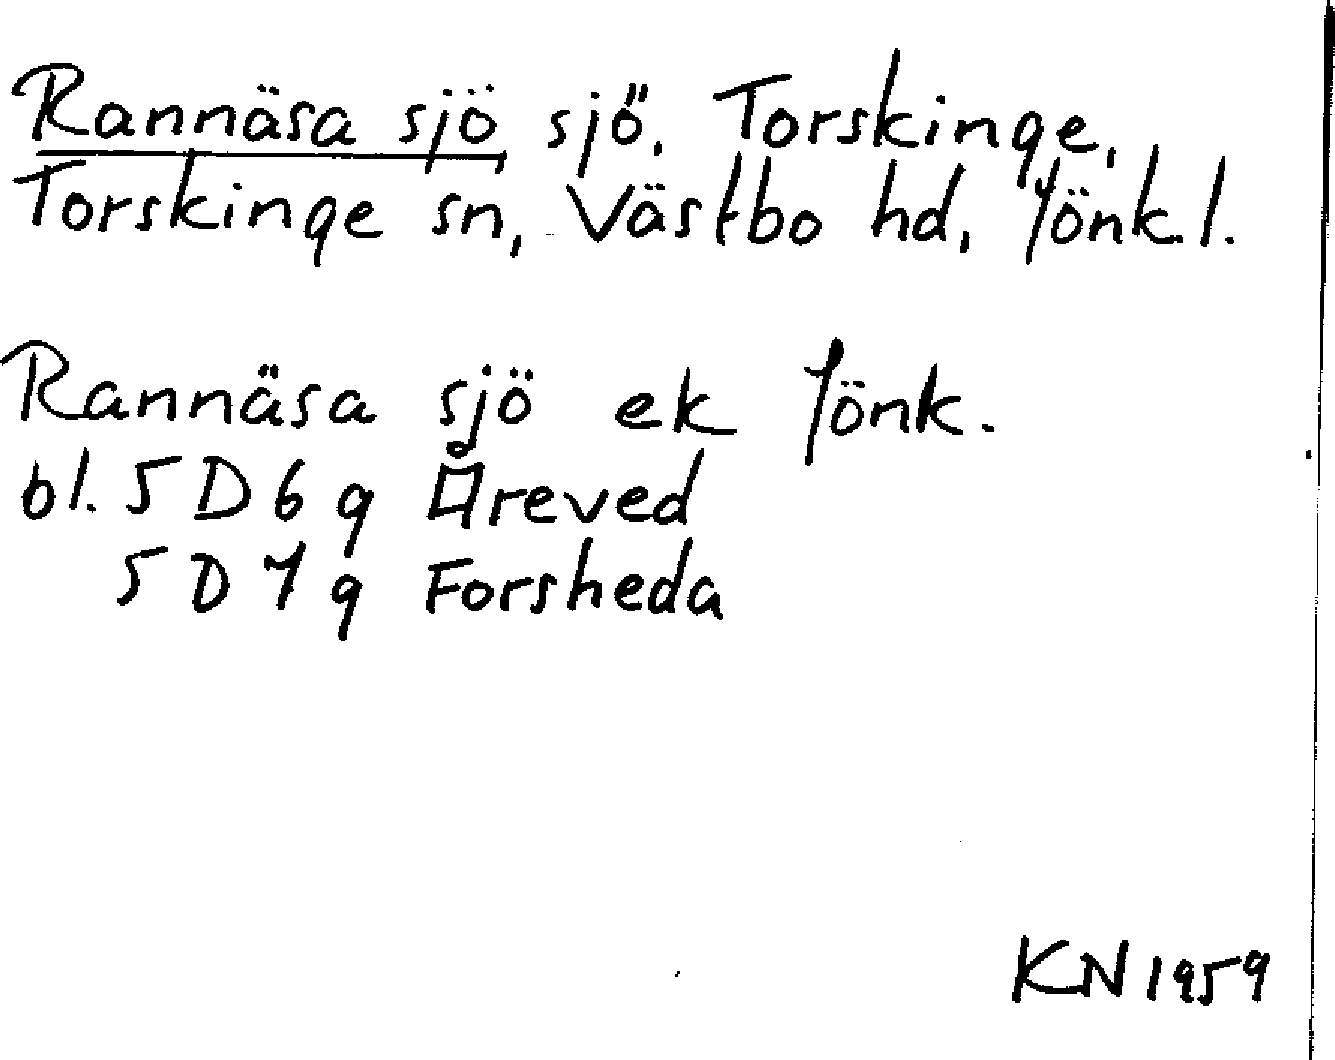 Rannäsa sjö sjö, Torskinge,
Torskinge sn, Västbo hd, Jönk.l.
Rannäsa sjö ek Jönk.
bl. 5 D 6 g Åreved
5 D 7 g Forsheda
KN 1959